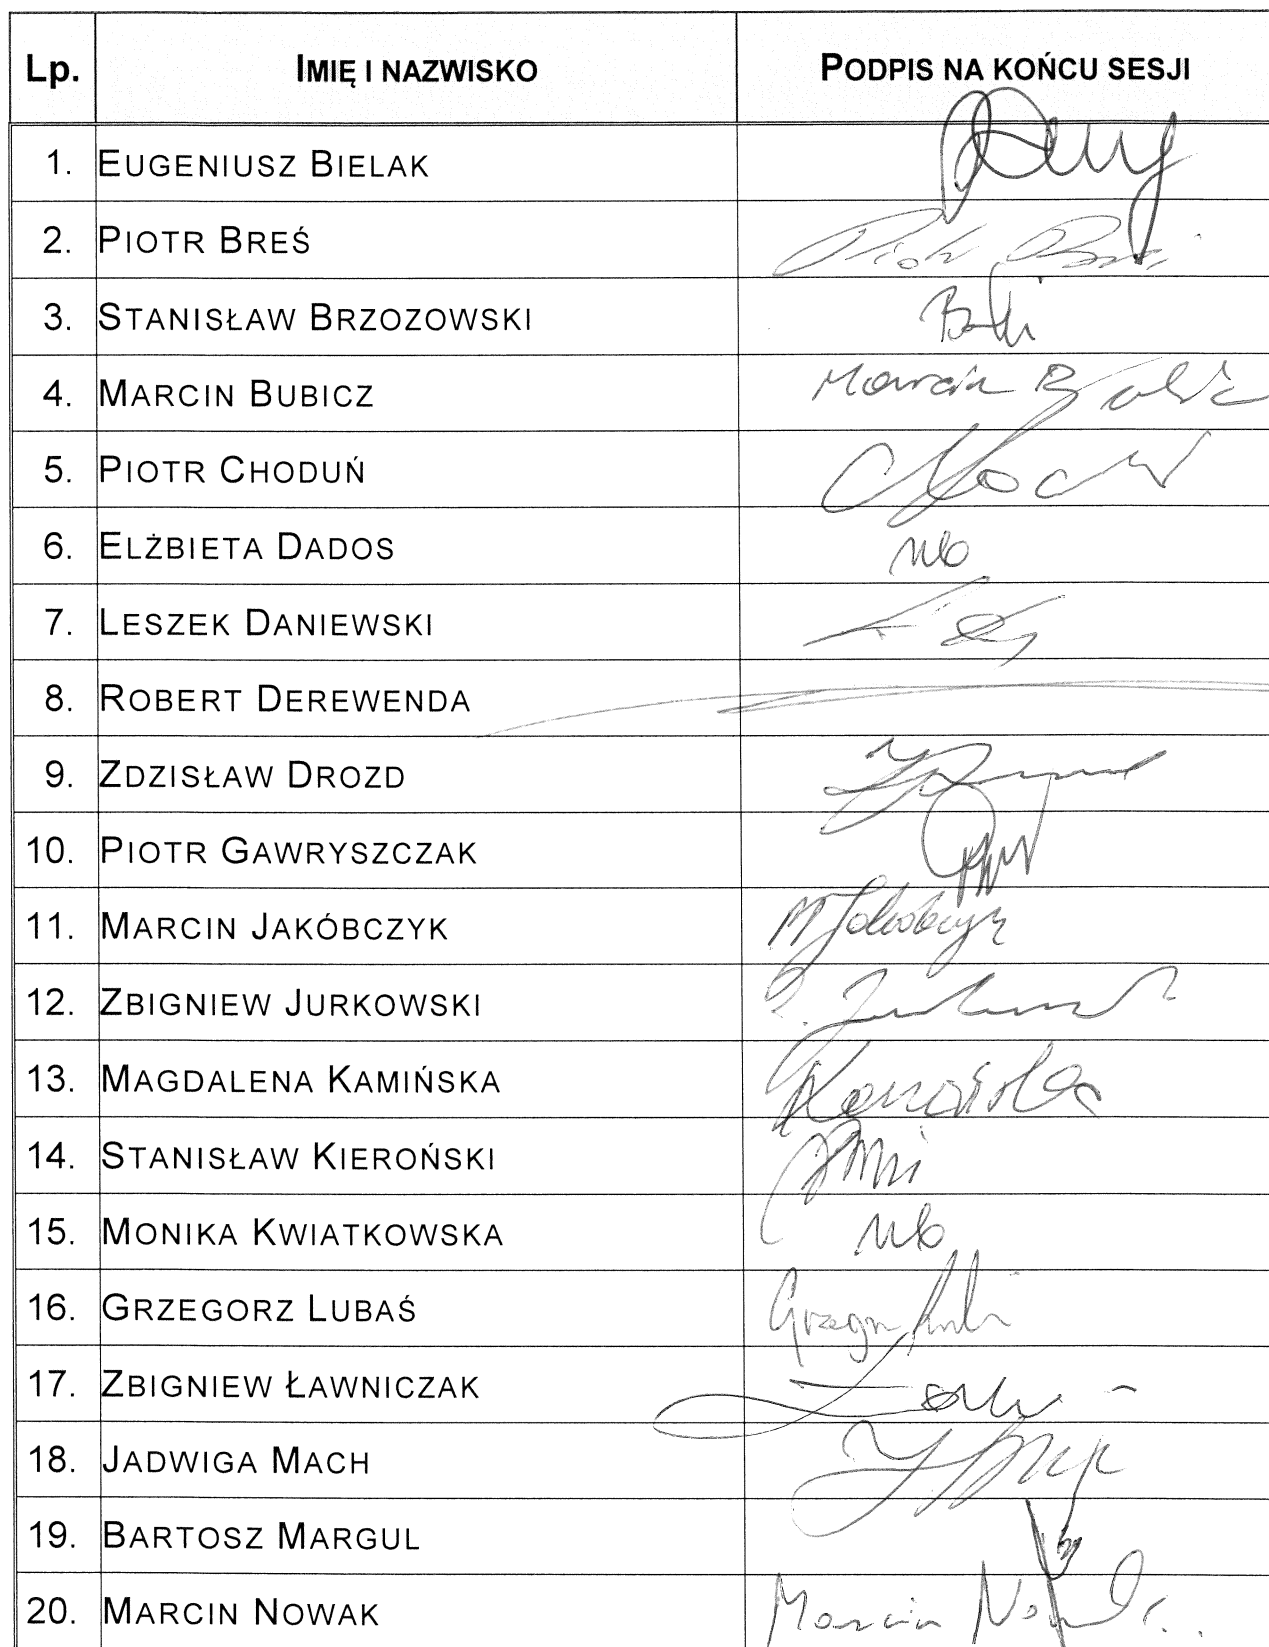 Lp. IMIĘ I NAZWISKO PODPIS NA KOŃCU SESJI
1. EUGENIUSZ BIELAK
2. PIOTR BREŚ
3. STANISŁAW BRZOZOWSKI
4. MARCIN BUBICZ Marcin
5. PIOTR CHODUŃ
6. ELŻBIETA DADOS nb
7. LESZEK DANIEWSKI
8. ROBERT DEREWENDA
9. ZDZISŁAW DROZD
10. PIOTR GAWRYSZCZAK
11. MARCIN JAKÓBCZYK M Jakóbczyk
12. ZBIGNIEW JURKOWSKI
13. MAGDALENA KAMIŃSKA Kamińska
14. STANISŁAW KIEROŃSKI
15. MONIKA KWIATKOWSKA nb
16. GRZEGORZ LUBAŚ
17. ZBIGNIEW ŁAWNICZAK
18. JADWIGA MACH
19. BARTOSZ MARGUL
20. MARCIN NOWAK Marcin Nowak